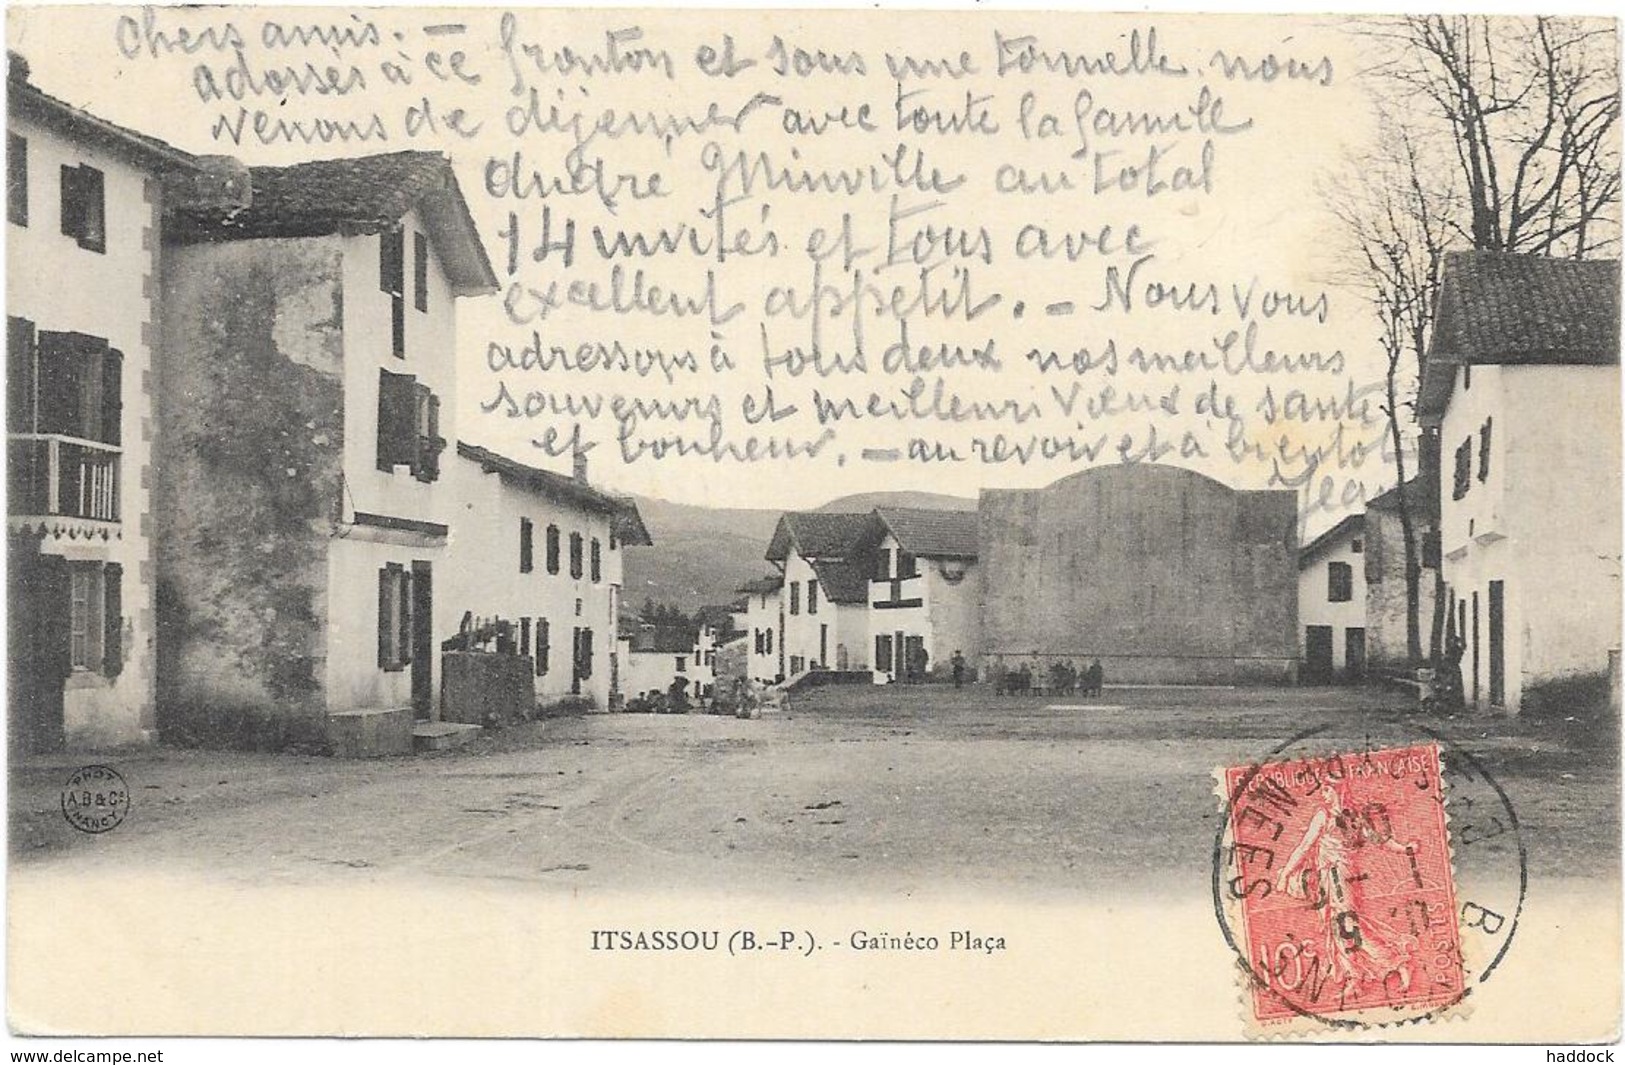 Chers amis. —
adossés à ce fronton et sous une tonnelle. nous
venons de déjeuner avec toute la famille
André Minville au total
14 invités et tous avec
excellent appétit. — Nous vous
adressons à tous deux nos meilleurs
souvenirs et meilleurs vieux de santé
et bonheur. — au revoir et à bientôt
Jean
PHOT
A.B & Cº
NANCY
ITSASSOU (B.-P.). - Gaïnéco Plaça
RÉPUBLIQUE FRANÇAISE
10c
POSTES
PYRENEES
www.delcampe.net
haddock